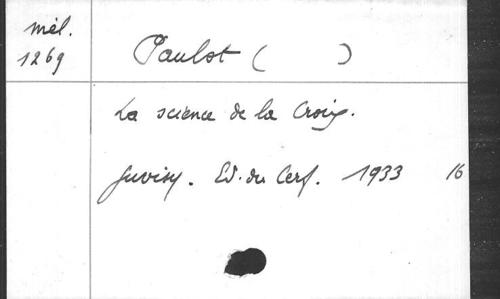 mél.
1269
Paulot ( )
La science de la Croix.
Juvisy. Ed. du Cerf. 1933 16